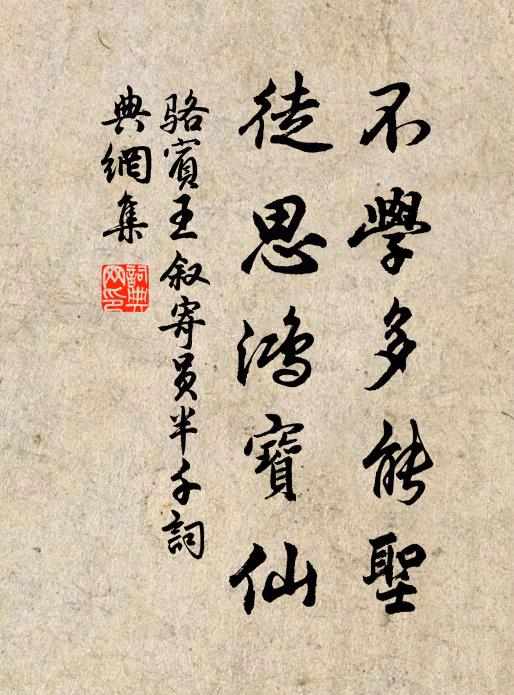 不學多能聖
徒思鴻寶仙
駱賓王叙寄員半千詞
典網集
詞典网印